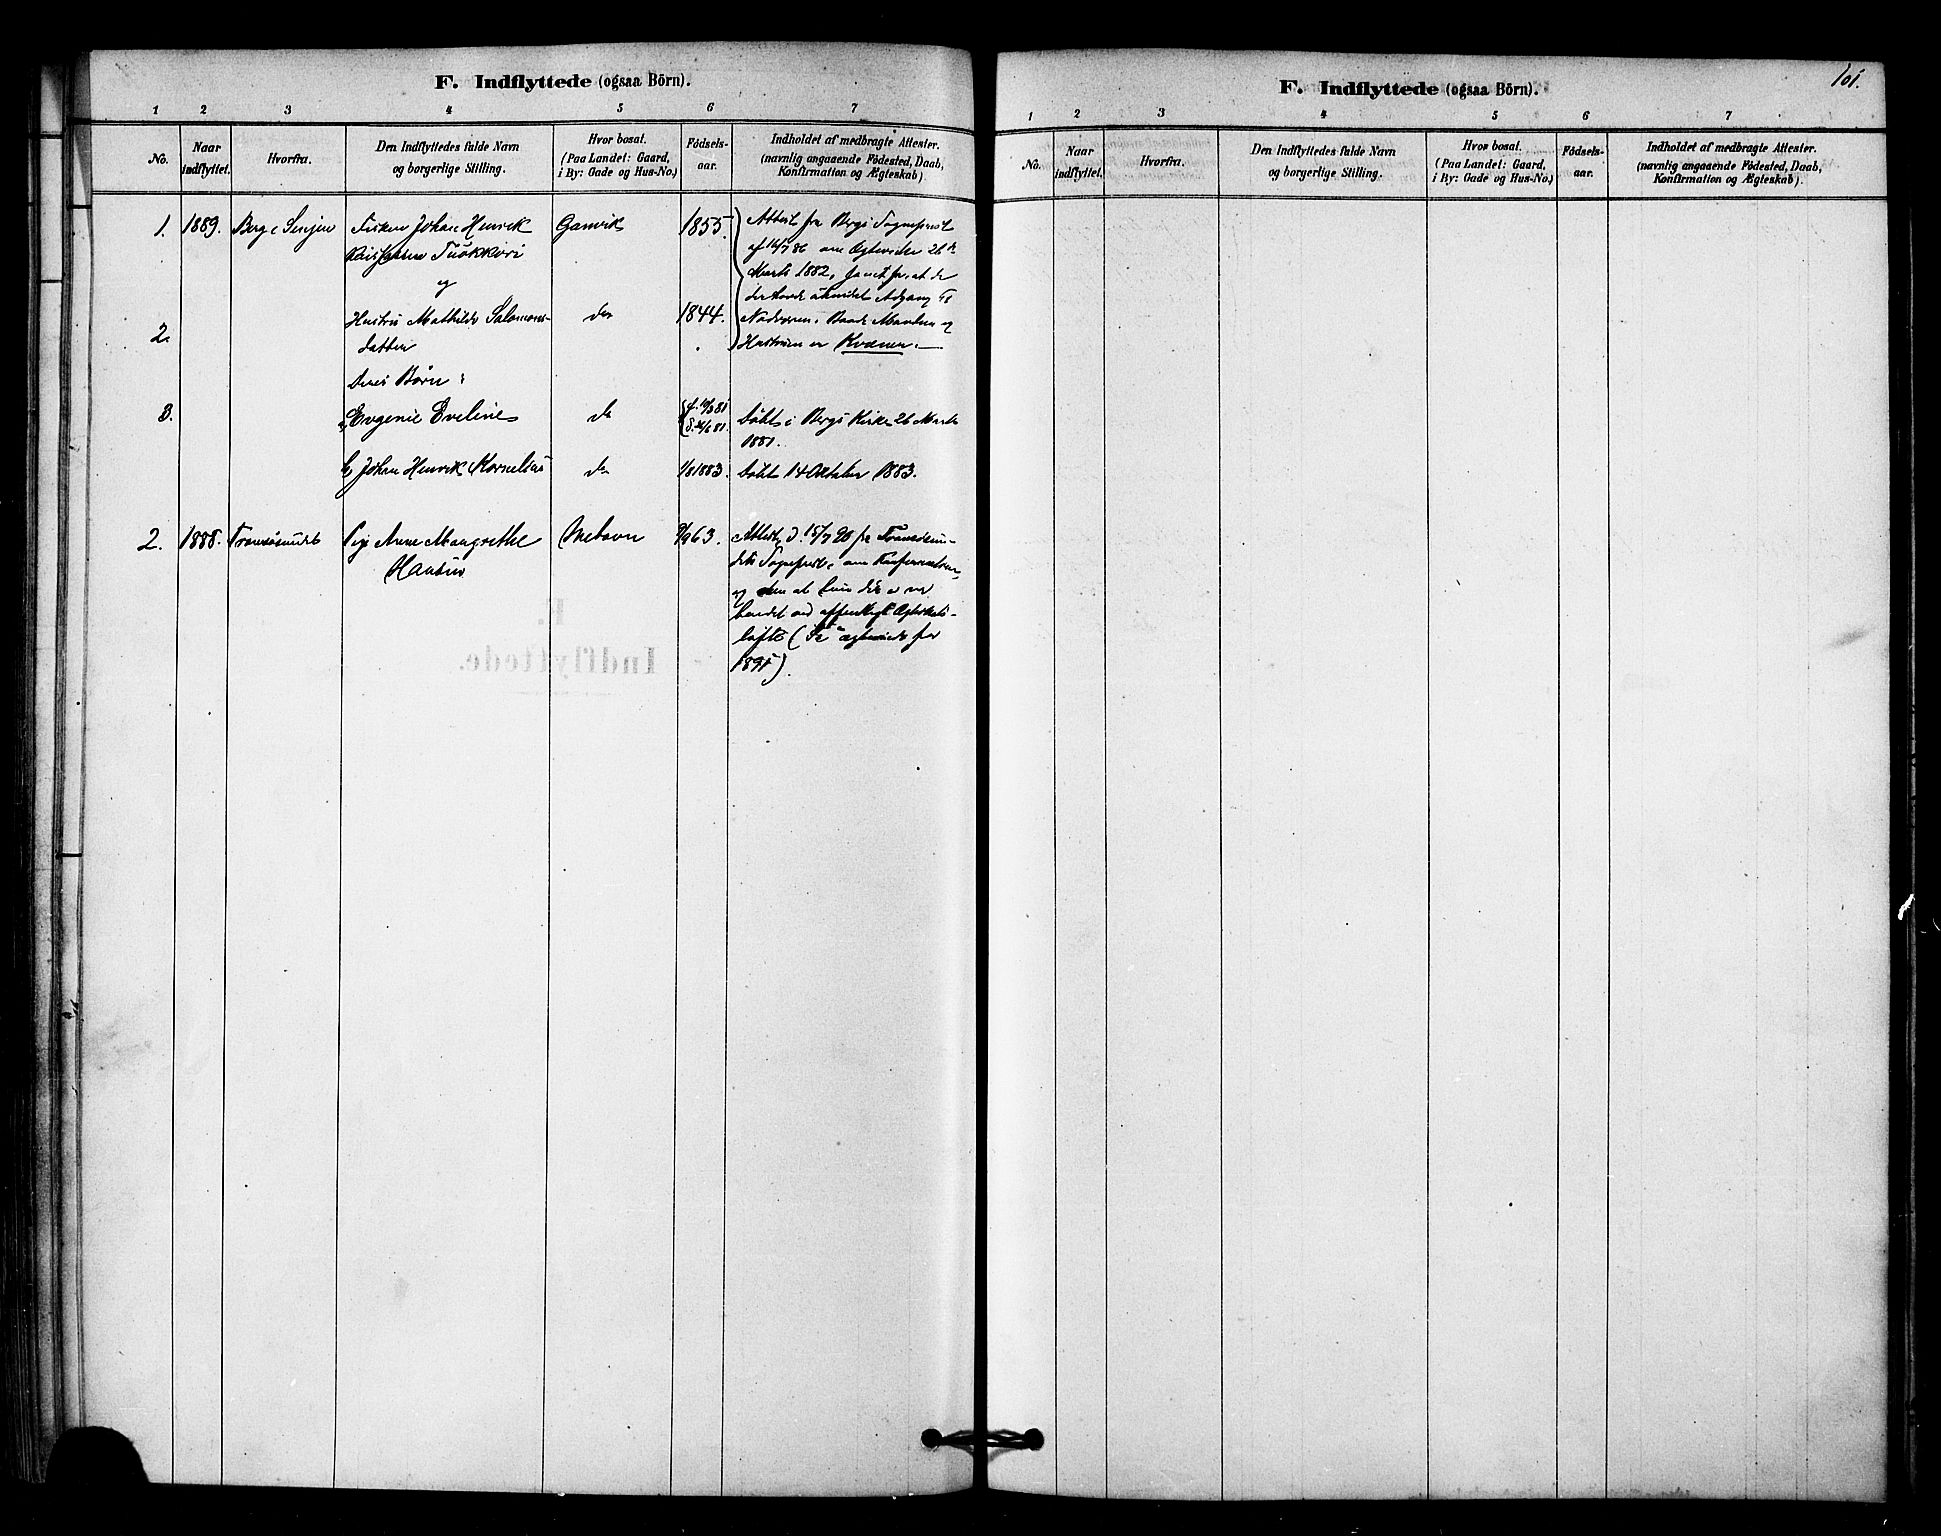 F. Indflyttede (ogsaa Börn).
1 2 3 4 5 6 7
No.
Naar
indflyttet.
Hvorfra.
Den Indflyttedes fulde Navn
og borgerlige Stilling.
Hvor bosat.
(Paa Landet: Gaard,
i By: Gade og Hus-No.)
Födsels-
aar.
Indholdet af medbragte Attester.
(navnlig angaaende Födested, Daab,
Konfirmation og Ægteskab).
1. 1889. Berg i Senjen Fisker Johan Henrik Gamvik 1855. Attest fra Bergs Sognepræst
af 16/7 86 om
Marts 1882,
og
2. Hustru Mathilde Salomons- do 1844.
datter Hustruen er Kvæner.
Deres Børn:
3. a, Evgenie Eveline do Døbt i Bergs Kirke 26 Marts
1881.
b, Johan Henrik Kornelius do 1/8 1883. Døbt 14 Oktober 1883.
2. 1888. Tromsøsundet Pige Anne Margrethe Mehavn 9/9 63. Attest d. 15/7 90 fra Tromsøsun-
Hansen dets Sognepræst, om Konfirmation,
og om at hun
offentligt Ægteskabs-
løfte (Se ægteviede for
1891).
F. Indflyttede (ogsaa Börn).
101.
1 2 3 4 5 6 7
No.
Naar
indflyttet.
Hvorfra.
Den Indflyttedes fulde Navn
og borgerlige Stilling.
Hvor bosat.
(Paa Landet: Gaard,
i By: Gade og Hus-No.)
Födsels-
aar.
Indholdet af medbragte Attester.
(navnlig angaaende Födested, Daab,
Konfirmation og Ægteskab).